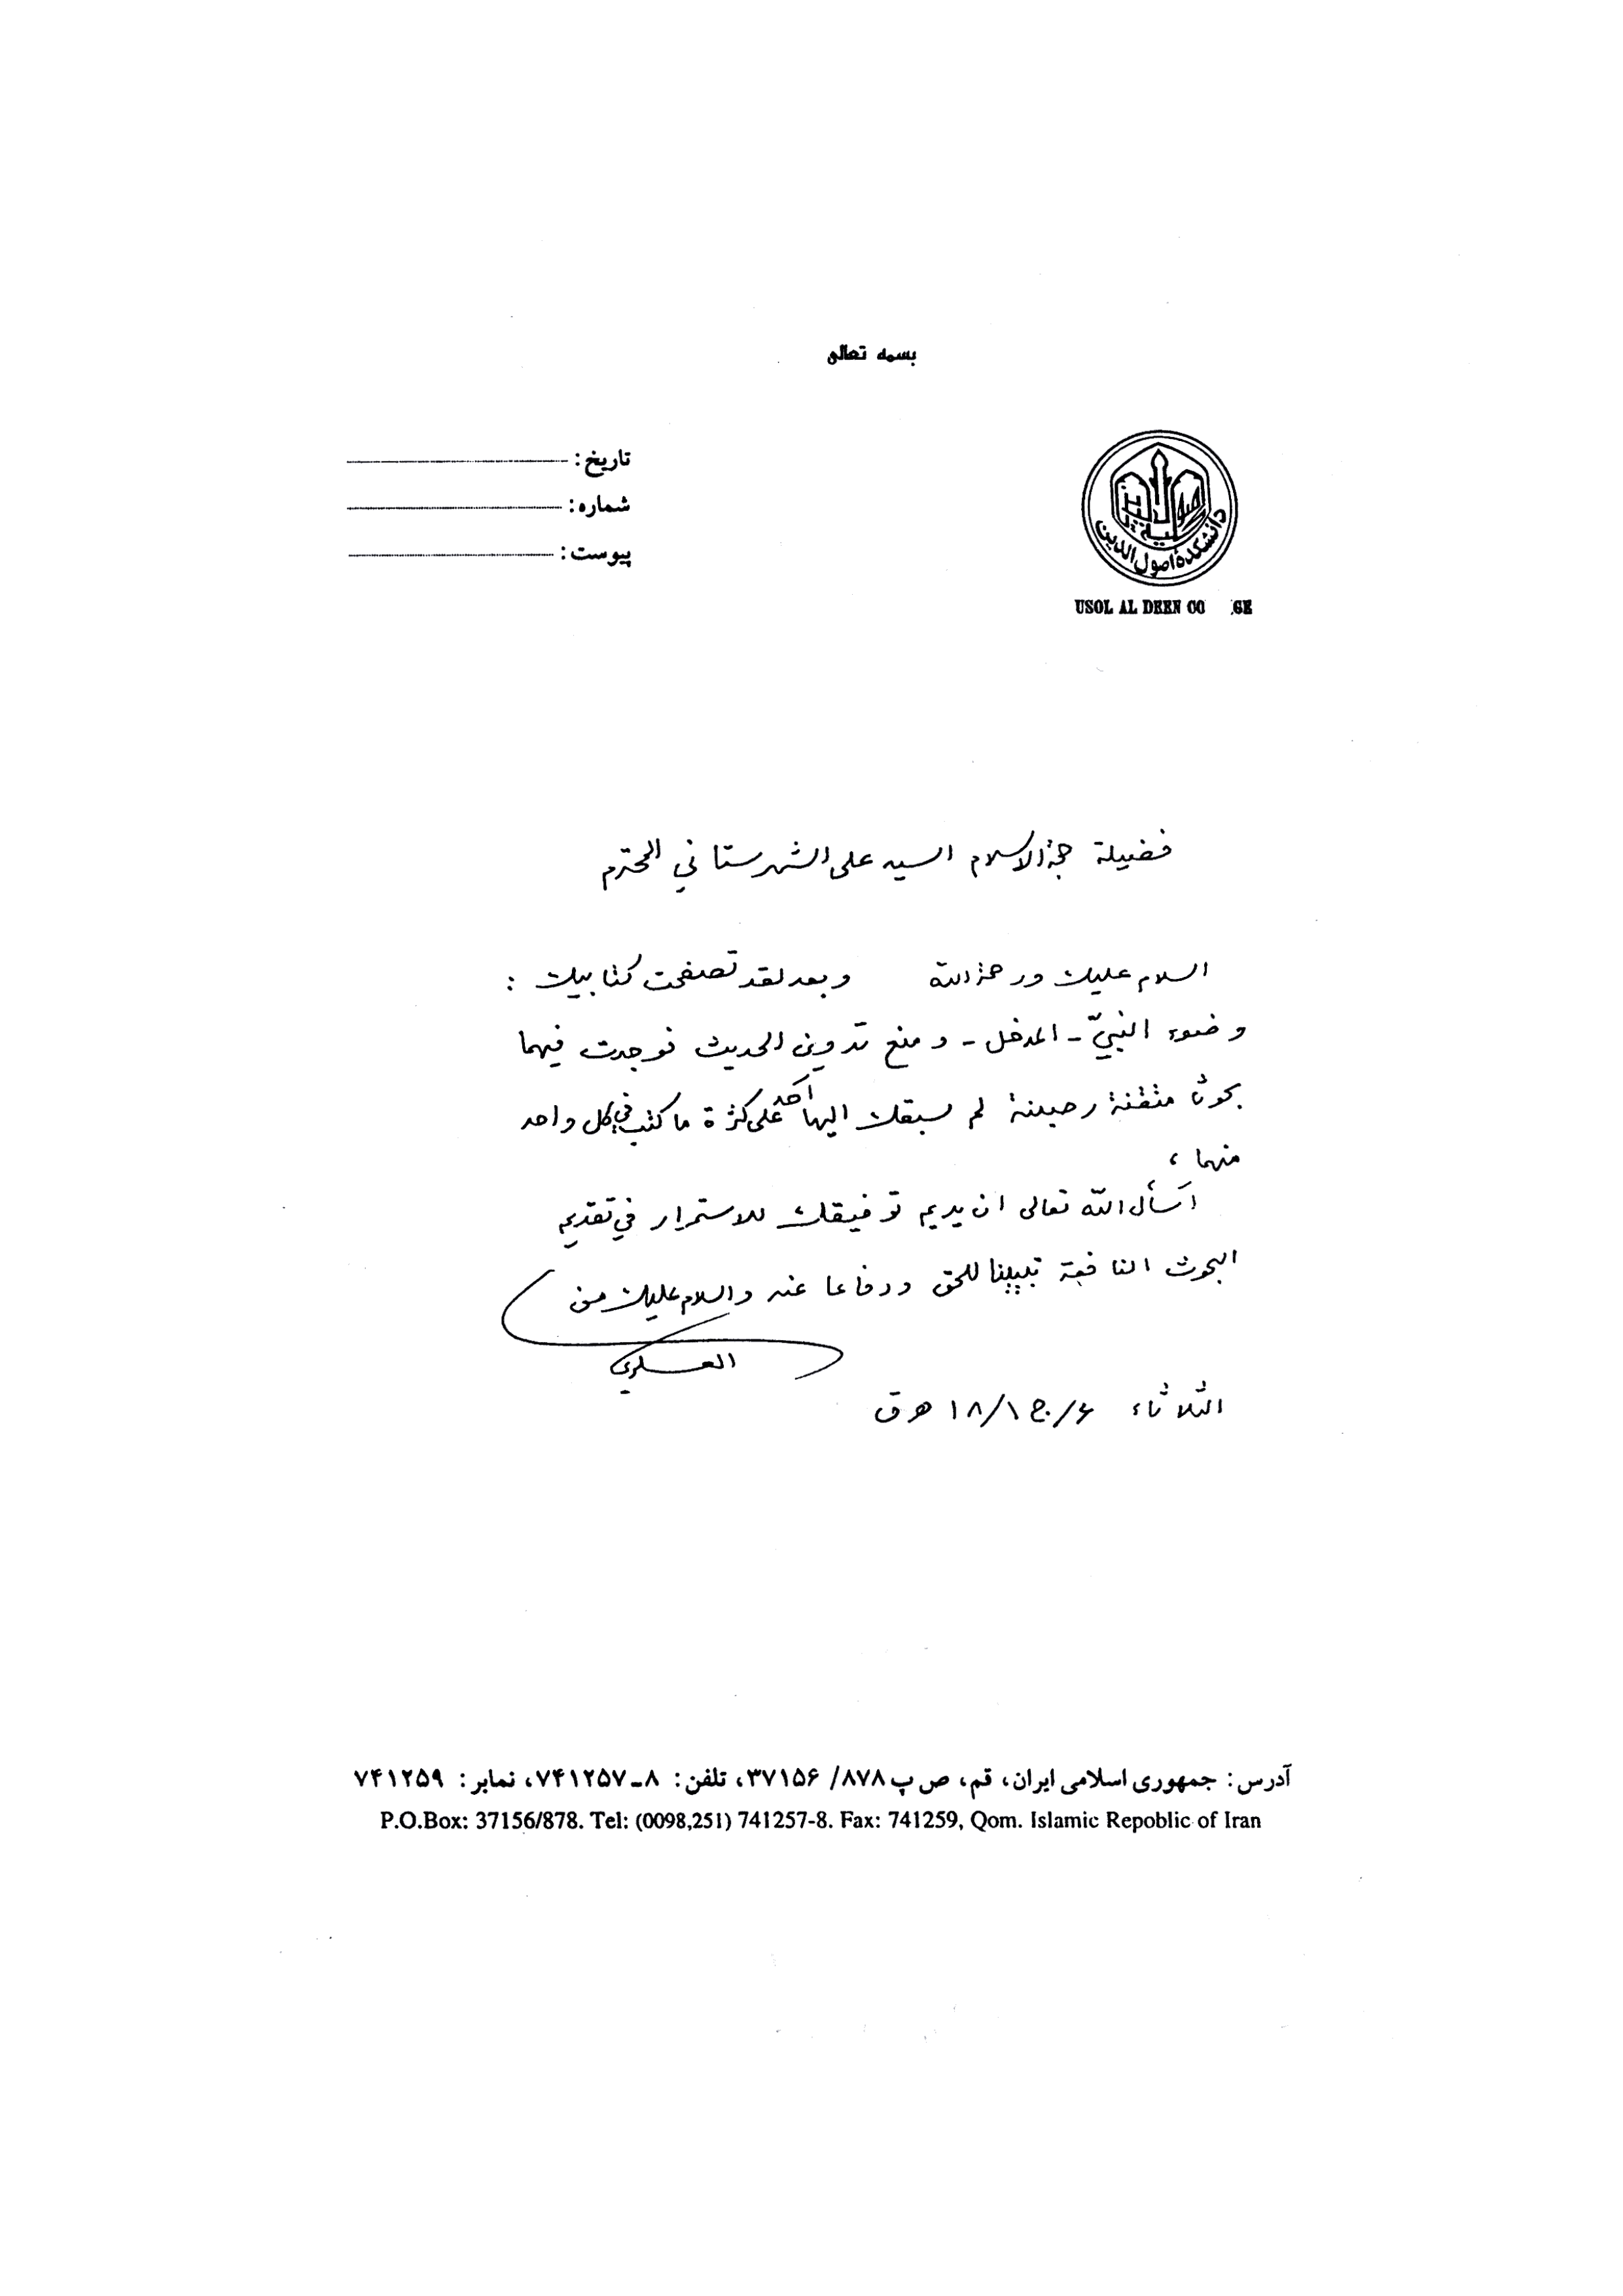 بسمه تعالى
تاریخ :
شماره :
پیوست :
دانشکدهٔ اصول الدین
USOL AL DEEN CO GE
فضيلة حجة الاسلام السيد على الشهرستاني المحترم
السلام عليك ورحمة الله وبعد لقد تصفحت كتابيك :
وضوء النبيّ - المدخل - و منع تدوين الحديث فوجدت فيهما
بحوثا متقنة رصينة لم يسبقك اليها أحد على كثرة ما كتب في كل واحد
منهما ،
أسأل الله تعالى ان يديم توفيقك للاستمرار في تقديم
البحوث النافعة تبيينا للحق ودفاعا عنه والسلام عليك من
العسكري
الثلاثاء ۶/ج۱/۱۸ هـ ق
آدرس : جمهوری اسلامی ایران، قم، ص پ ۸۷۸/ ۳۷۱۵۶، تلفن : ۸-۷۴۱۲۵۷، نمابر : ۷۴۱۲۵۹
P.O.Box: 37156/878. Tel: (0098,251) 741257-8. Fax: 741259, Qom. Islamic Repoblic of Iran